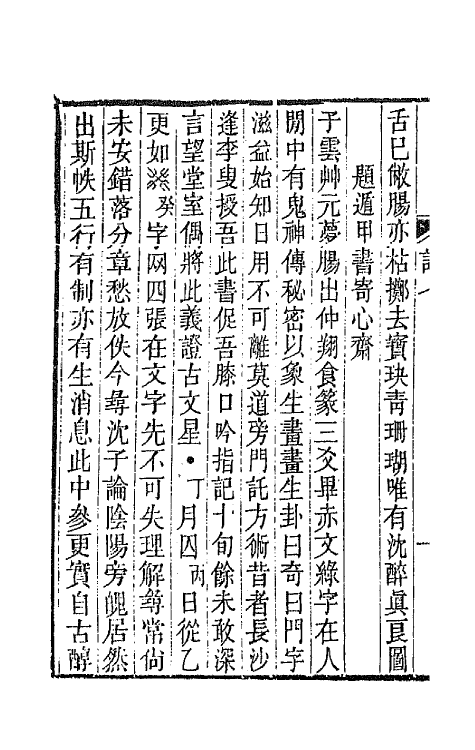 舌已敝腸亦枯擲去寶玦靑珊瑚唯有沈醉眞良圖
題遁甲書寄心齋
于雲艸元夢腸出仲翔食篆三爻畢赤文綠字在人
閒中有鬼神傳秘密以象生畫畫生卦曰奇曰門字
滋益始知日用不可離莫道旁門託方術昔者長沙
逢李叟授吾此書促吾膝口吟指記十旬餘未敢深
言望堂室偶將此義證古文星●丁月囚丙日從乙
更如癸字网四張在文字先不可失理解尋常尙
未安錯落分章愁放佚今尋沈子論陰陽旁魄居然
出斯帙五行有制亦有生消息此中參更實自古醇